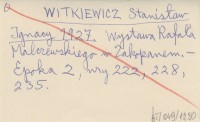 WITKIEWICZ Stanisław
Ignacy 1927. Wystawa Rafała
Malczewskiego w Zakopanem. –
Epoka 2, nry 222, 228,
235.